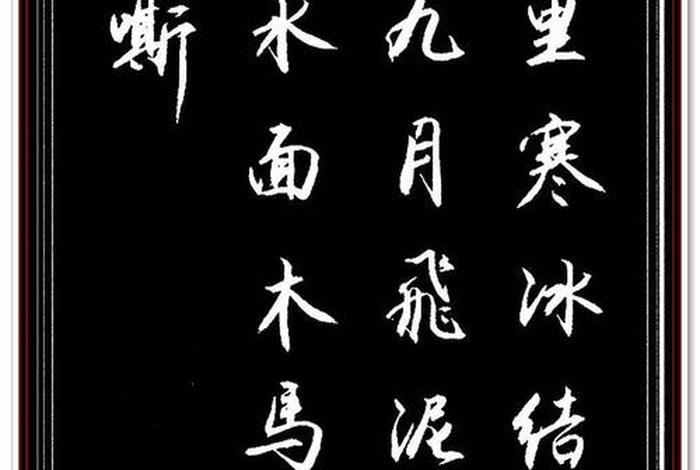 里寒冰结
九月飛泥
水面木馬
嘶